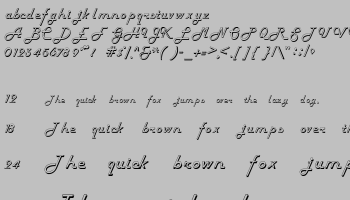 abcdefghijklmnopqrstuvwxyz
ABCDEFGHIJKLMNOPQRSTUV
0123456789
12 The quick brown fox jumps over the lazy dog.
18 The quick brown fox jumps over
24 The quick brown fox